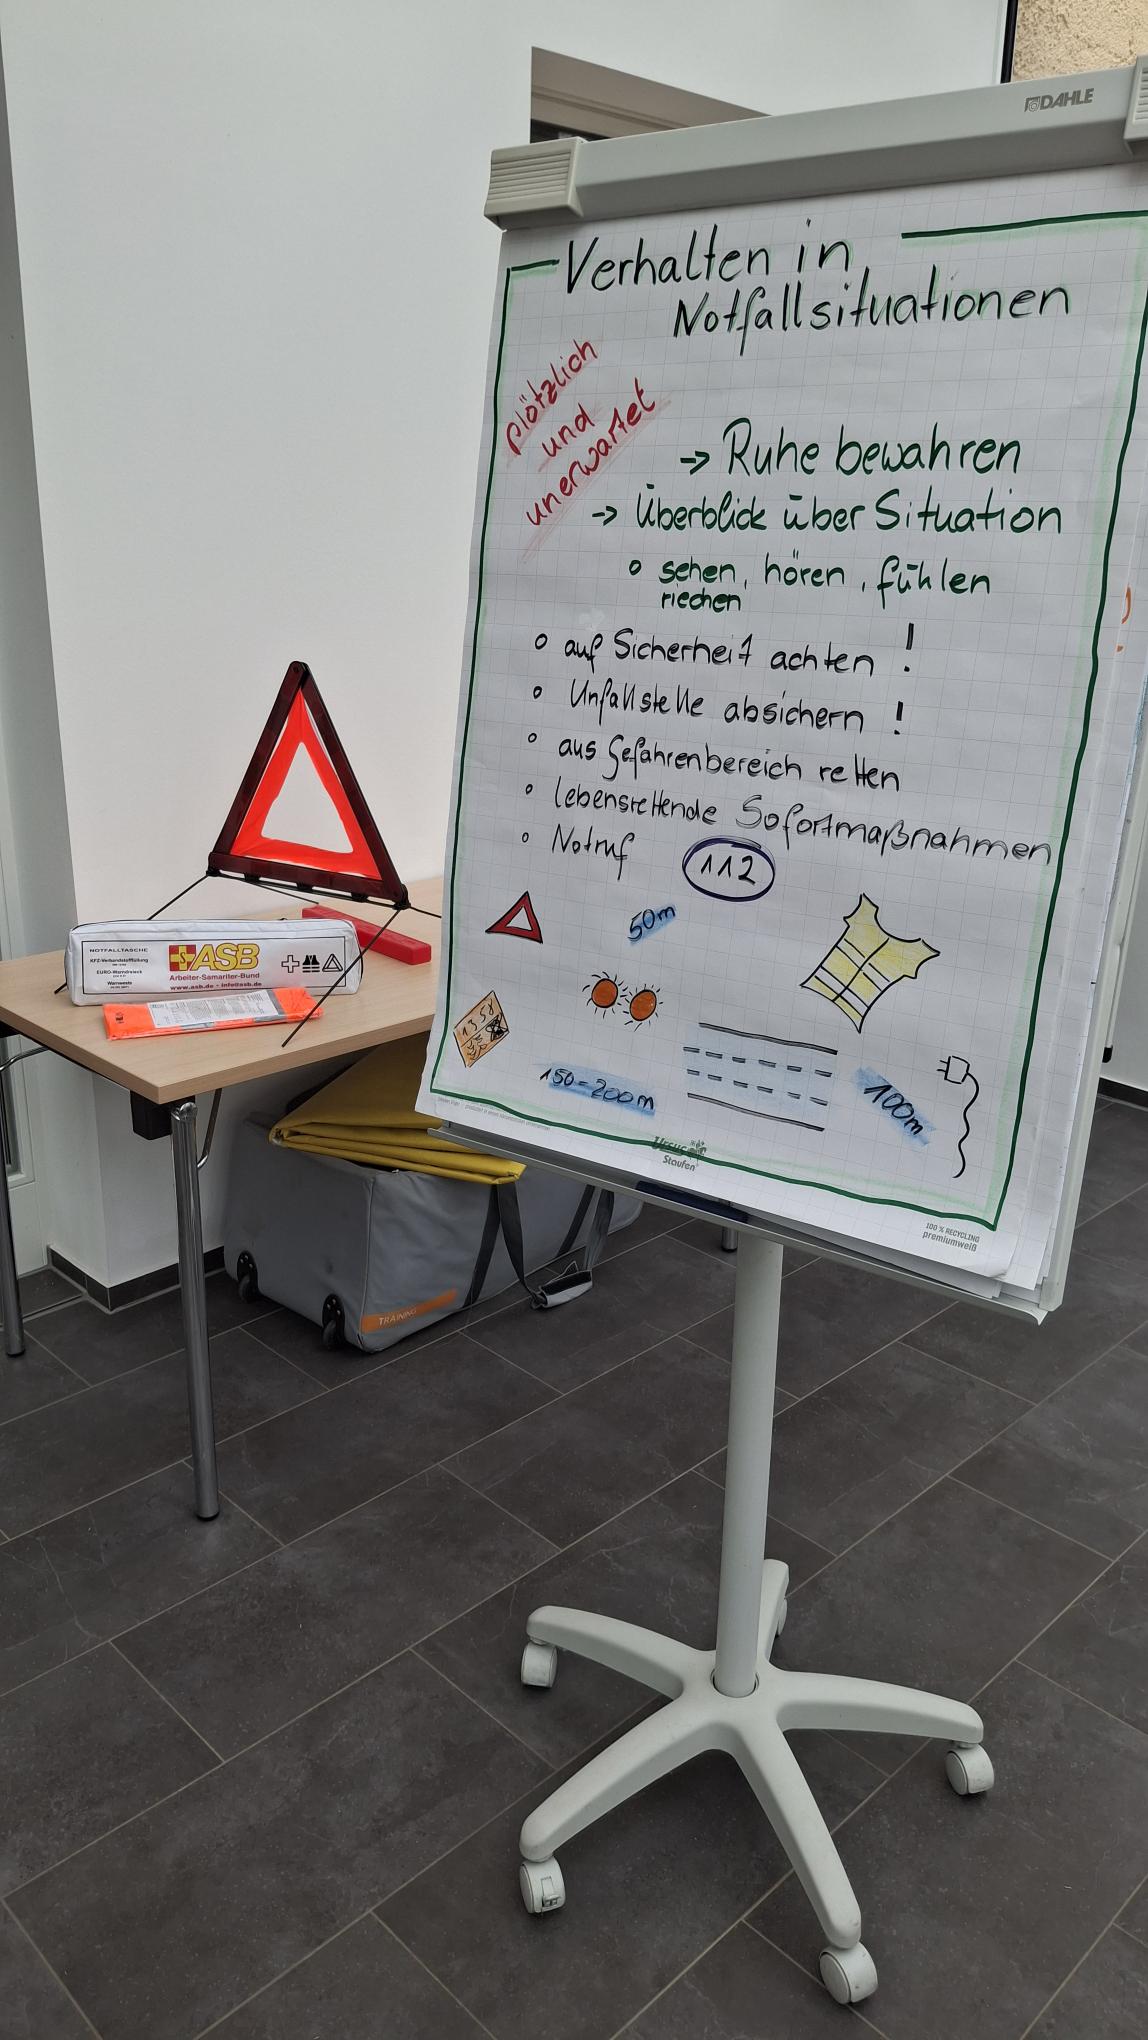 DAHLE
Verhalten in
Notfallsituationen
plötzlich
und
unerwartet
→ Ruhe bewahren
→ Überblick über Situation
o sehen, hören, fühlen
riechen
o auf Sicherheit achten !
o Unfallstelle absichern !
o aus Gefahrenbereich retten
o lebensrettende Sofortmaßnahmen
o Notruf 112
50m
1358
150-200m
100m
Ursus
Staufen
100 % RECYCLING
premiumweiß
NOTFALLTASCHE
KFZ-Verbandstofffüllung
EURO-Warndreieck
Warnweste
S
ASB
Arbeiter-Samariter-Bund
www.asb.de - info@asb.de
TRAINING